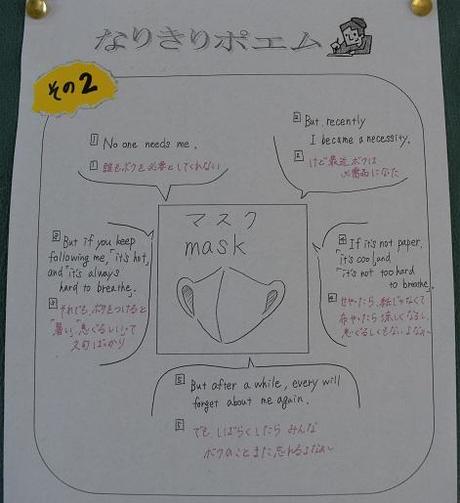 なりきりポエム
その2
1 No one needs me.
1 誰もボクを必要としてくれない
2 But recently
I became a necessity.
2 けど最近ボクは
必需品になった
3 But if you keep
following me, "it's hot,"
and "it's always
hard to breathe."
3 それでも、ボクをつけると
「暑い」「息ぐるしい」って
文句ばっかり
マスク
mask
4 If it's not paper,
"it's cool," and
"it's not too hard
to breathe."
4 せやったら、紙じゃなくて
布やったら涼しくなるし、
息ぐるしくもないよなぁ〜
5 But after a while, every will
forget about me again.
5 でも、しばらくしたらみんな
ボクのことまた忘れるよなぁ〜